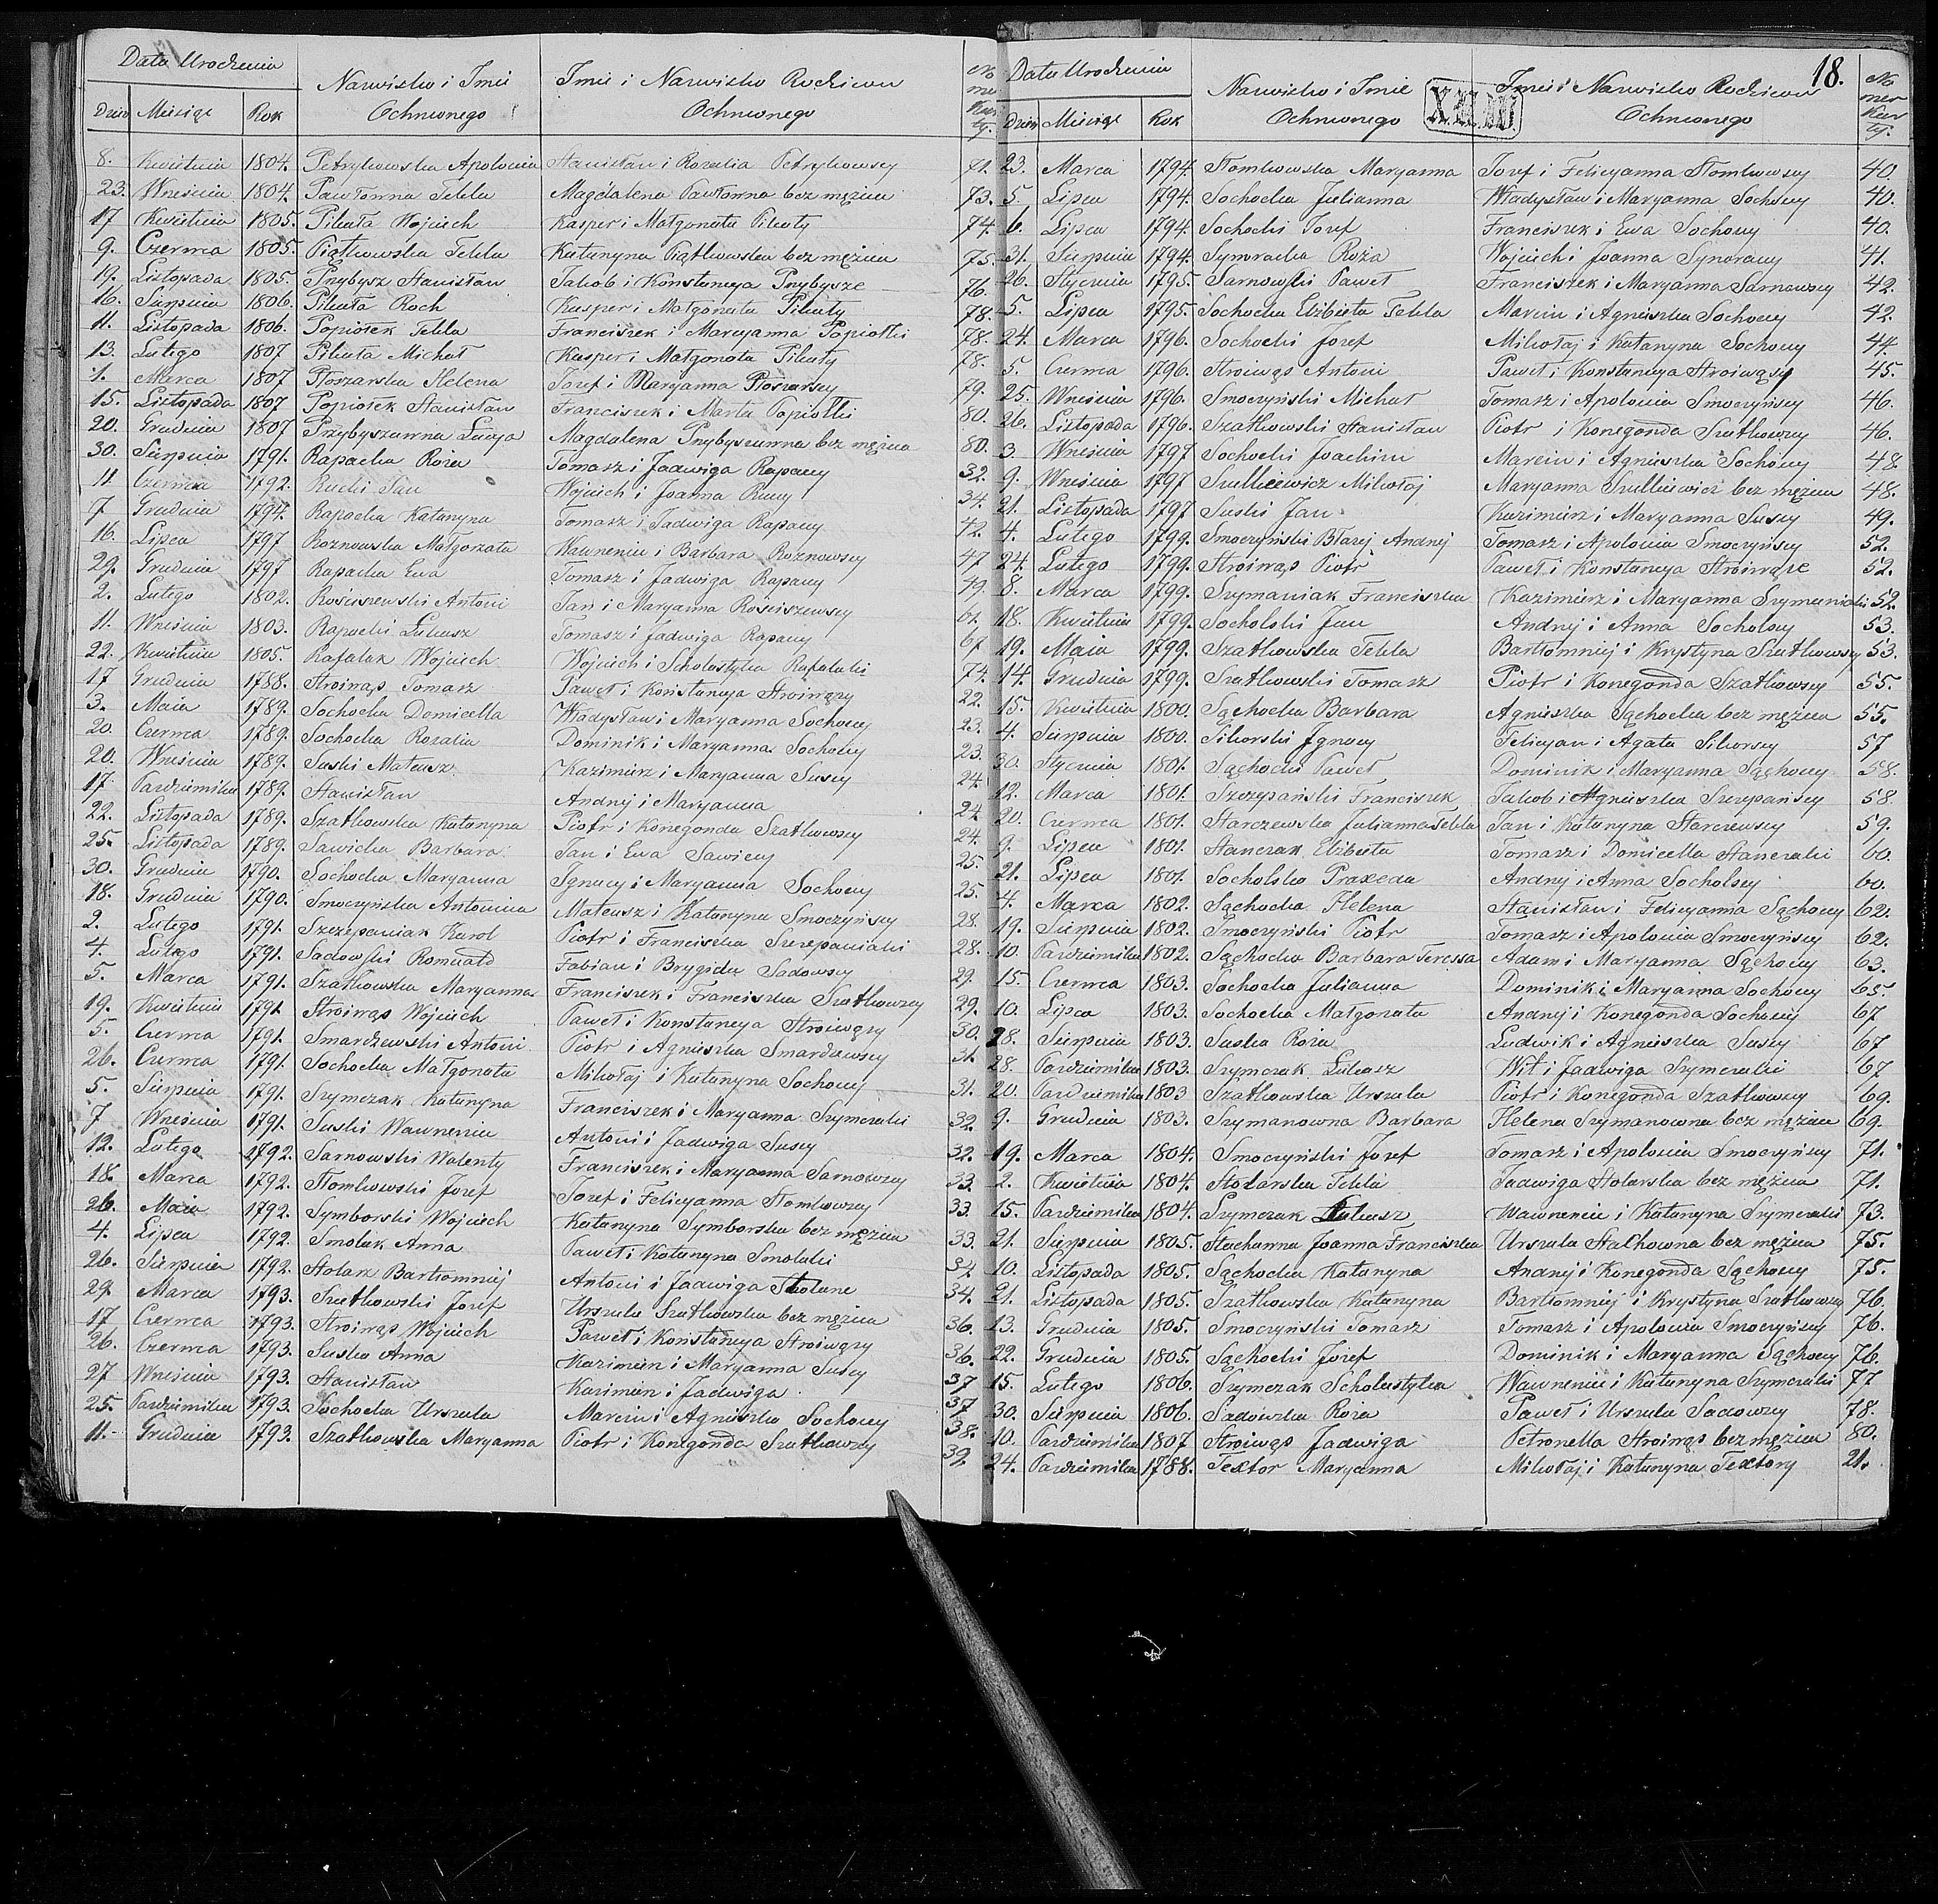 Data Urodzenia
Nazwisko i Imie Ochrzconego
Imie i Nazwisko Rodziców Ochrzconego
Dzien Miesiąc Rok
8. Kwietnia 1804. Petrykowska Apolonia Stanisław i Rozalia Petrykowscy 71.
23. Września 1804. Pawłowna Tekla Magdalena Pawłowna bez mężna 73.
17 Kwietnia 1805. Pikuta Wojciech Kasper i Małgorzata Pikuty 74.
9. Czerwca 1805. Piątkowska Tekla Katarzyna Piątkowska bez mężna 75.
19. Listopada 1805. Przybysz Stanisław Jakob i Konstancya Przybysze 76.
16. Sierpnia 1806. Pikuta Roch Kasper i Małgorzata Pikuty 78.
11. Listopada 1806. Popiołek Tekla Franciszek i Maryanna Popiołki 78.
13. Lutego 1807 Pikuta Michał Kasper i Małgorzata Pikuty 78.
1. Marca 1807 Płoszarska Helena Jozef i Maryanna Płoszarscy 79.
15. Listopada 1807 Popiołek Stanisław Franciszek i Marta Popiołki 80.
20. Grudnia 1807 Przybyszewna Łucya Magdalena Przybyszewna bez mężna 80.
30. Sierpnia 1791. Rapacka Roża Tomasz i Jadwiga Rapaccy 32.
11 Czerwca 1792. Rucki Jan Wojciech i Joanna Ruccy 34.
7 Grudnia 1794. Rapacka Katarzyna Tomasz i Jadwiga Rapaccy 42.
16. Lipca 1797 Roznowska Małgorzata Wawrzeniec i Barbara Roznowscy 47
29. Grudnia 1797 Rapacka Ewa Tomasz i Jadwiga Rapaccy 49.
2. Lutego 1802. Rościszewski Antoni Jan i Maryanna Rościszewscy 61.
11. Września 1803. Rapacki Łukasz Tomasz i Jadwiga Rapaccy 67
22. Kwietnia 1805. Rafalak Wojciech Wojciech i Scholastyka Rafalaki 74.
17 Grudnia 1788. Stroiwąs Tomasz Paweł i Konstancya Stroiwąsy 22.
3. Maia 1789. Sochocka Domicella Władysław i Maryanna Sochoccy 23.
20. Czerwca 1789. Sochocka Rozalia Dominik i Maryanna Sochoccy 23.
20. Września 1789. Suski Mateusz Kazimierz i Maryanna Suscy 24.
17 Pazdziernika 1789. Stanisław Andrzej i Maryanna 24.
22. Listopada 1789. Szatkowska Katarzyna Piotr i Konegonda Szatkowscy 24.
25. Listopada 1789. Sawicka Barbara Jan i Ewa Sawiccy 25.
30. Grudnia 1790. Sochocka Maryanna Ignacy i Maryanna Sochoccy 25.
18. Grudnia 1790. Smoczyńska Antonina Mateusz i Katarzyna Smoczyńscy 28.
2. Lutego 1791. Szczepaniak Karol Piotr i Franciszka Szczepaniaki 28.
4. Lutego 1791. Sadowski Romuald Fabian i Brygida Sadowscy 29.
5. Marca 1791. Szatkowska Maryanna Franciszek i Franciszka Szatkowscy 29.
19. Kwietnia 1791. Stroiwąs Wojciech Paweł i Konstancya Stroiwąsy 30.
5. Czerwca 1791. Smardzewski Antoni Piotr i Agnieszka Smardzewscy 31.
26. Czerwca 1791. Sochocka Małgorzata Mikołaj i Katarzyna Sochoccy 31.
5. Sierpnia 1791. Szymczak Katarzyna Franciszek i Maryanna Szymczaki 32.
7 Września 1791. Suski Wawrzeniec Antoni i Jadwiga Suscy 32.
12. Lutego 1792. Sarnowski Walenty Franciszek i Maryanna Sarnowscy 33.
18. Marca 1792. Słomkowski Jozef Jozef i Felicyanna Słomkowscy 33.
26. Maia 1792. Symborski Wojciech Katarzyna Symborska bez mężna 33.
4. Lipca 1792. Smolak Anna Paweł i Katarzyna Smolaki 34.
26. Sierpnia 1792. Stolarz Bartłomniej Antoni i Jadwiga Stolarze 34.
29 Marca 1793. Szatkowski Jozef Urszula Szatkowska bez mężna 36.
17 Czerwca 1793. Stroiwąs Wojciech Paweł i Konstancya Stroiwąsy 36.
26. Czerwca 1793. Suska Anna Kazimierz i Maryanna Suscy 37
27 Września 1793. Stanisław Kazimierz i Jadwiga 37
25. Pazdziernika 1793. Sochocka Urszula Marcin i Agnieszka Sochoccy 38.
11. Grudnia 1793. Szatkowska Maryanna Piotr i Konegonda Szatkowscy 39.
18.
Data Urodzenia
Nazwisko i Imie Ochrzconego
Imie i Nazwisko Rodziców Ochrzconego
Dzien Miesiąc Rok
23. Marca 1794. Słomkowska Maryanna Jozef i Felicyanna Słomkowscy 40.
5. Lipca 1794. Sochocka Julianna Władysław i Maryanna Sochoccy 40.
6. Lipca 1794. Sochocki Jozef Franciszek i Ewa Sochoccy 40.
31. Sierpnia 1794. Synoracka Roża Wojciech i Joanna Synoraccy 41.
26. Stycznia 1795. Sarnowski Paweł Franciszek i Maryanna Sarnowscy 42.
5. Lipca 1795. Sochocka Elżbieta Tekla Marcin i Agnieszka Sochoccy 42.
24. Marca 1796. Sochocki Jozef Mikołaj i Katarzyna Sochoccy 44.
5. Czerwca 1796. Stroiwąs Antoni Paweł i Konstancya Stroiwąsy 45.
25. Września 1796. Smoczyński Michał Tomasz i Apolonia Smoczyńscy 46.
26. Listopada 1796. Szatkowski Stanisław Piotr i Konegonda Szatkowscy 46.
3. Września 1797 Sochocki Joachim Marcin i Agnieszka Sochoccy 48.
9. Września 1797 Szulkiewicz Mikołaj Maryanna Szulkiewicz bez mężna 48.
21. Listopada 1797 Suski Jan Kazimierz i Maryanna Suscy 49.
4. Lutego 1799. Smoczyński Błarej Andrzej Tomasz i Apolonia Smoczyńscy 52.
24. Lutego 1799. Stroiwąs Piotr Paweł i Konstancya Stroiwąse 52.
8. Marca 1799. Szymaniak Franciszka Kazimierz i Maryanna Szymaniaki 52.
18. Kwietnia 1799. Socholski Jan Andrzej i Anna Socholscy 53.
19. Maia 1799. Szatkowska Tekla Bartłomniej i Krystyna Szatkowscy 53.
14. Grudnia 1799. Szatkowski Tomasz Piotr i Konegonda Szatkowscy 55.
15. Kwietnia 1800. Sąchocka Barbara Agnieszka Sąchocka bez mężna 55.
4. Sierpnia 1800. Sikorski Ignacy Felicyan i Agata Sikorscy 57
30. Stycznia 1801. Sąchocki Paweł Dominik i Maryanna Sąchoccy 58.
12. Marca 1801. Szczepański Franciszek Jakob i Agnieszka Szczepańscy 58
20. Czerwca 1801. Starczewska Julianna Tekla Jan i Katarzyna Starczewscy 59.
9. Lipca 1801. Stanczak Elżbieta Tomasz i Domicella Stanczaki 60.
21. Lipca 1801. Socholska Praxeda Andrzej i Anna Socholscy 60.
4. Marca 1802. Sąchocka Helena Stanisław i Felicyanna Sąchoccy 62.
19. Sierpnia 1802. Smoczyński Piotr Tomasz i Apolonia Smoczyńscy 62.
10. Pazdziernika 1802. Sąchocka Barbara Teressa Adam i Maryanna Sąchoccy 63.
15. Czerwca 1803. Sochocka Julianna Dominik i Maryanna Sochoccy 65.
10. Lipca 1803. Sochocka Małgorzata Andrzej i Konegonda Sochoccy 67
28. Sierpnia 1803. Suska Roża Ludwik i Agnieszka Suscy 67
28. Pazdziernika 1803. Szymczak Łukasz Wit i Jadwiga Szymczaki 67
20. Pazdziernika 1803 Szatkowska Urszula Piotr i Konegonda Szatkowscy 69.
9. Grudnia 1803. Szymanowna Barbara Helena Szymanowna bez mężna 69.
19. Marca 1804. Smoczyński Jozef Tomasz i Apolonia Smoczyńscy 71.
2. Kwietnia 1804. Stolarska Tekla Jadwiga Stolarska bez mężna 71.
15. Pazdziernika 1804. Szymczak Łukasz Wawrzeniec i Katarzyna Szymczaki 73.
21. Sierpnia 1805. Stachowna Joanna Franciszka Urszula Stachowna bez mężna 75.
10. Listopada 1805. Sąchocka Katarzyna Andrzej i Konegonda Sąchoccy 75.
21. Listopada 1805. Szatkowska Katarzyna Bartłomniej i Krystyna Szatkowscy 76.
13. Grudnia 1805. Smoczyński Tomasz Tomasz i Apolonia Smoczyńscy 76.
22. Grudnia 1805. Sąchocki Jozef Dominik i Maryanna Sąchoccy 76.
15. Lutego 1806. Szymczak Scholastyka Wawrzeniec i Katarzyna Szymczaki 77
30. Sierpnia 1806. Sadowska Roża Paweł i Urszula Sadowscy 78.
10. Pazdziernika 1807 Stroiwąs Jadwiga Petronella Stroiwąs bez mężna 80.
24. Pazdziernika 1788. Textor Maryanna Mikołaj i Katarzyna Textory 21.